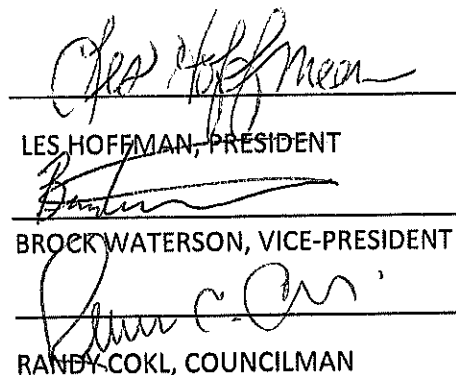 Les Hoffman
LES HOFFMAN, PRESIDENT
BROCK WATERSON, VICE-PRESIDENT
RANDY COKL, COUNCILMAN